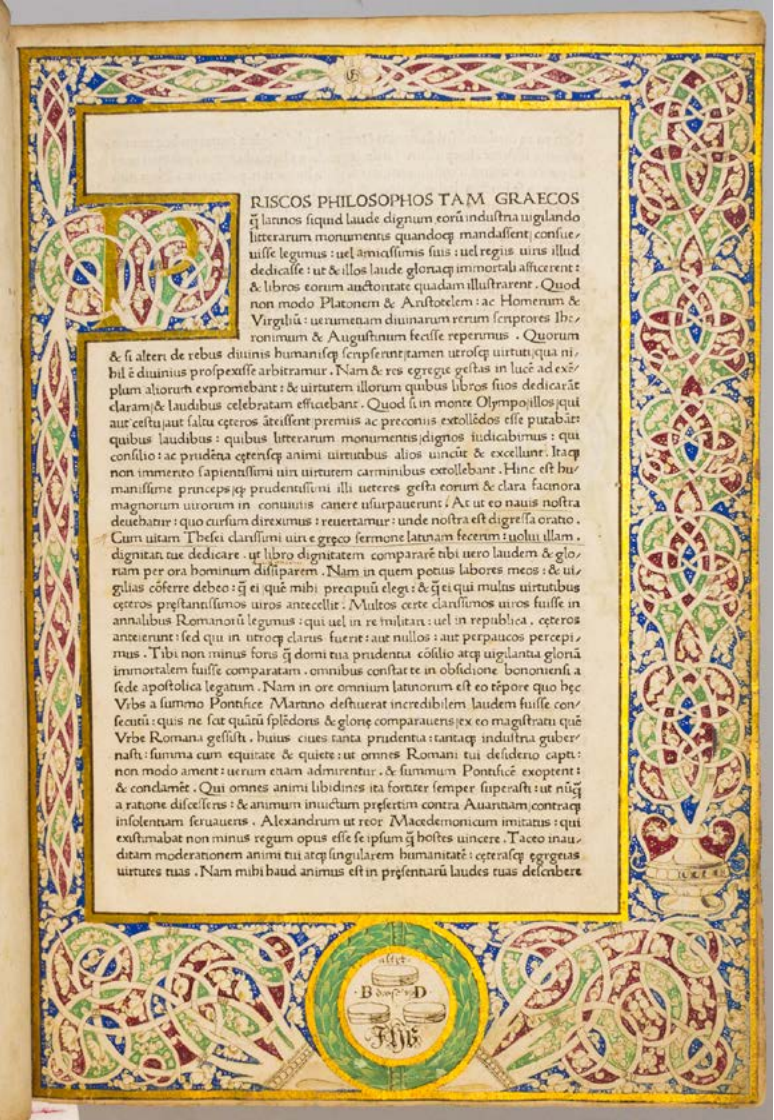 PRISCOS PHILOSOPHOS TAM GRAECOS
q̃ latinos siquid laude dignum eorũ industria uigilando
litterarum monumentis quandoqꝫ mandassent; consue⸗
uisse legimus : uel amicissimis suis : uel regiis uiris illud
dedicasse : ut & illos laude gloriaqꝫ immortali afficerent :
& libros eorum auctoritate quadam illustrarent . Quod
non modo Platonem & Aristotelem : ac Homerum &
Virgiliũ : uerumetiam diuinarum rerum scriptores Ihe⸗
ronimum & Augustinum fecisse reperimus . Quorum
& si alteri de rebus diuinis humanisqꝫ scripserint; tamen utrosqꝫ uirtuti; qua ni⸗
hil ẽ diuinius prospexisse arbitramur . Nam & res egregie gestas in lucẽ ad exẽ⸗
plum aliorum expromebant : & uirtutem illorum quibus libros suos dedicarãt
claram; & laudibus celebratam efficiebant . Quod si in monte Olympo; illos; qui
aut cestu; aut saltu cęteros ãteissent premiis ac preconiis extollẽdos esse putabãt :
quibus laudibus : quibus litterarum monumentis; dignos iudicabimus : qui
consilio : ac prudẽtia cęterisqꝫ animi uirtutibus alios uincũt & excellunt. Itaqꝫ
non immerito sapientissimi uiri uirtutem carminibus extollebant . Hinc est hu⸗
manissime princeps; qꝫ prudentissimi illi ueteres gesta eorum & clara facinora
magnorum uirorum in conuiuiis canere usurpauerunt . At ut eo nauis nostra
deuehatur : quo cursum direximus : reuertamur : unde nostra est digressa oratio .
Cum uitam Thesei clarissimi uiri e gręco sermone latinam fecerim : uolui illam .
dignitati tue dedicare . ut libro dignitatem comparare tibi uero laudem & glo⸗
riam per ora hominum dissiparem . Nam in quem potius labores meos : & ui⸗
gilias cõferre debeo : q̃ ei ; quẽ mihi precipiũ elegi : & q̃ ei qui multis uirtutibus
cęteros pręstantissimos uiros antecellit . Multos certe clarissimos uiros fuisse in
annalibus Romanorũ legimus : qui uel in re militari : uel in republica . cęteros
anteierunt : sed qui in utroqꝫ clarus fuerit : aut nullos : aut perpaucos percepi⸗
mus . Tibi non minus foris q̃ domi tua prudentia cõsilio atqꝫ uigilantia gloriã
immortalem fuisse comparatam . omnibus constat te in obsidione bononiensi a
sede apostolica legatum . Nam in ore omnium latinorum est eo tẽpore quo hęc
Vrbs a summo Pontifice Martino destituerat incredibilem laudem fuisse con⸗
secutũ : quis ne scit quãtũ splẽdoris & glorię comparaueris; ex eo magistratu quẽ
Vrbe Romana gessisti . huius ciues tanta prudentia : tantaqꝫ industria guber⸗
nasti : summa cum equitate & quiete : ut omnes Romani tui desiderio capti :
non modo ament : uerum etiam admirentur . & summum Pontificẽ exoptent :
& conclamẽt . Qui omnes animi libidines ita fortiter semper superasti : ut nũq̃
a ratione discesseris : & animum inuictum pręsertim contra Auaritiam; contraqꝫ
insolentiam seruaueris . Alexandrum ut reor Macedemonicum imitatus : qui
existimabat non minus regum opus esse se ipsum q̃ hostes uincere . Taceo inau⸗
ditam moderationem animi tui atqꝫ singularem humanitatẽ : cęterasqꝫ ęgręgias
uirtutes tuas . Nam mihi haud animus est in pręsentiarũ laudes tuas describere
B D